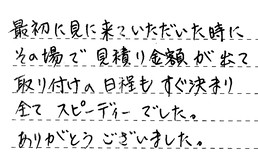 最初に見に来ていただいた時に
その場で見積り金額が出て
取り付けの日程もすぐ決まり
全てスピーディーでした。
ありがとうございました。